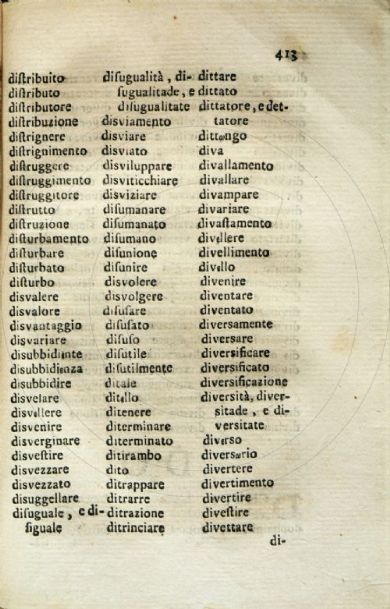 413
diſtribuito
diſtributo
diſtributore
diſtribuzione
diſtrignere
diſtrignimento
diſtruggere
diſtruggimento
diſtruggitore
diſtrutto
diſtruzione
diſturbamento
diſturbare
diſturbato
diſturbo
disvalere
disvalore
disvantaggio
disvariare
disubbidiente
disubbidienza
disubbidire
disvelare
disvellere
disvenire
disverginare
disveſtire
disvezzare
disvezzato
disuggellare
diſuguale, e di-
ſiguale
diſugualità, di-
ſugualitade, e
diſugualitate
disviamento
disviare
disviato
disviluppare
disviticchiare
disviziare
diſumanare
diſumanato
diſumano
diſunione
diſunire
disvolere
disvolgere
diſuſare
diſuſato
diſuſo
diſutile
diſutilmente
ditale
ditello
ditenere
diterminare
diterminato
ditirambo
dito
ditrappare
ditrarre
ditrazione
ditrinciare
dittare
dittato
dittatore, e det-
tatore
dittongo
diva
divallamento
divallare
divampare
divariare
divaſtamento
divellere
divellimento
divello
divenire
diventare
diventato
diversamente
diversare
diversificare
diversificato
diversificazione
diversità, diver-
sitade, e di-
versitate
diverso
diversorio
divertere
divertimento
divertire
diveſtire
divettare
di-